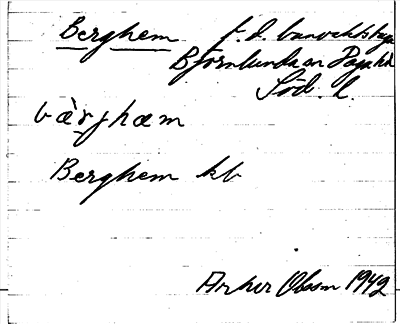 Berghem f.d. banvaktst.
Björnlunda sn Daga hd
Söd. l.
bæ̀rjhæm
Berghem kb
Ivar Olsson 1942